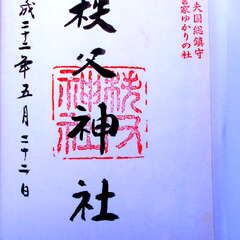 大国総鎮守
宮家ゆかりの社
秩父神社
秩父神社
成二十二年五月二十二日